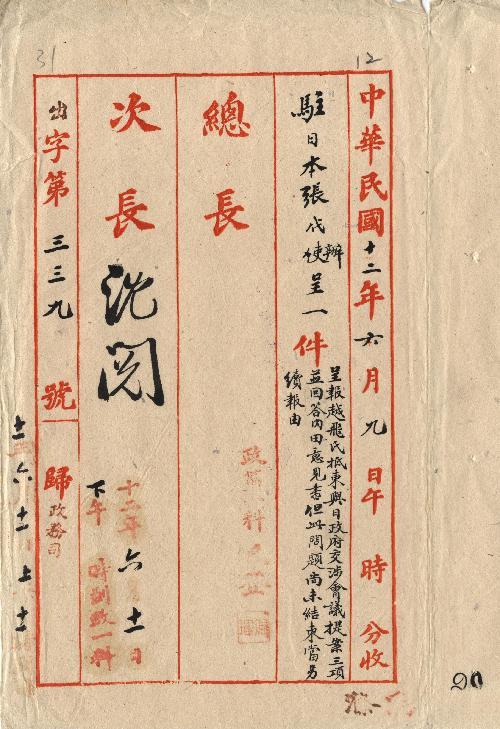 31
12
中華民國十二年六月九日午　時　分收
駐日本張代辦使呈一件
呈報越飛氏抵東與日政府交涉會議提案三項
並回答內田意見書但此問題尚未結束當另
續報由
總長
次長
沈閱
十二年六月十一日
下午　時到政一科
出字第三三九號
歸政務司
20